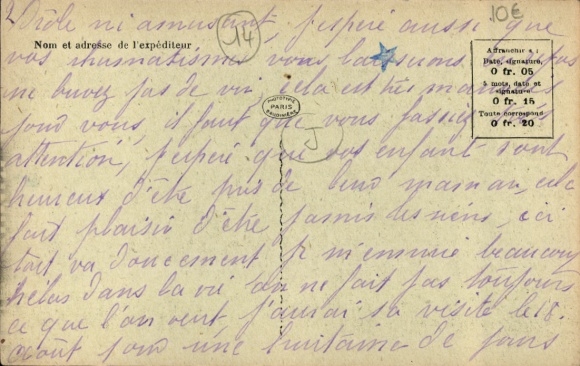 2) drôle ni amusant, j'espère aussi que
10€
14
Nom et adresse de l'expéditeur
vos rhumatismes vous laisserons pas
Affranchir à :
Date, signature,
0 fr. 05
5 mots, date et
signature
0 fr. 15
Toute correspond
0 fr. 20
ne buvez pas de vin cela est très mauvais
PHOTOTYPIE
PARIS
J
pour vous, il faut que vous fassiez
attention, j'espère que vos enfant sont
heureux d'être près de leur maman, cela
fait plaisir d'être parmis les siens, ici
tout va doucement je m'ennuie beaucoup
hélas dans la vie on ne fait pas toujours
ce que l'on veut j'aurai sa visite le 18
août pour une huitaine de jours